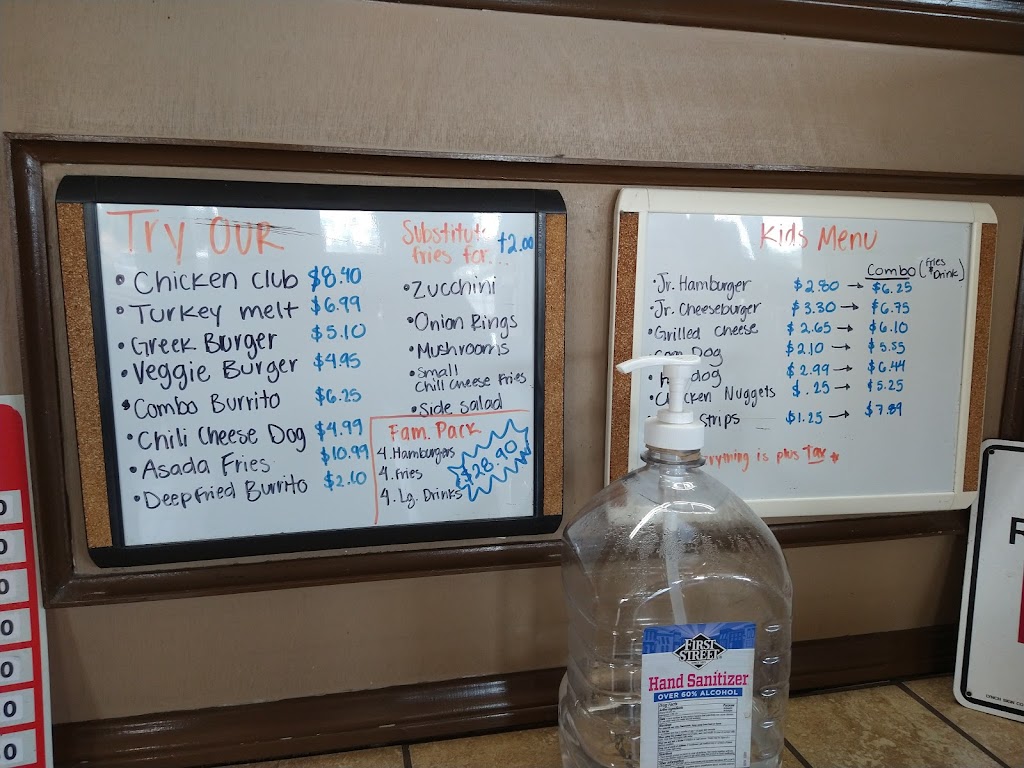 Try OUR
• Chicken Club $8.40
• Turkey melt $6.99
• Greek Burger $5.10
• Veggie Burger $4.95
• Combo Burrito $6.25
• Chili Cheese Dog $4.99
• Asada Fries $10.99
• Deepfried Burrito $2.10
Substitute +2.00
fries for...
• Zucchini
• Onion Rings
• Mushrooms
• Small
Chili Cheese Fries
• Side Salad
Fam. Pack
4. Hamburgers
4. fries
4. Lg. Drinks
$28.90
Kids Menu
Combo (fries & Drink)
• Jr. Hamburger $2.80 → $6.25
• Jr. Cheeseburger $3.30 → $6.75
• Grilled Cheese $2.65 → $6.10
Dog $2.10 → $5.55
dog $2.99 → $6.44
Nuggets $.25 → $5.25
strips $1.25 → $7.89
everything is plus Tax
FIRST
STREET
Hand Sanitizer
OVER 60% ALCOHOL
Drug Facts
0
0
0
0
0
0
0